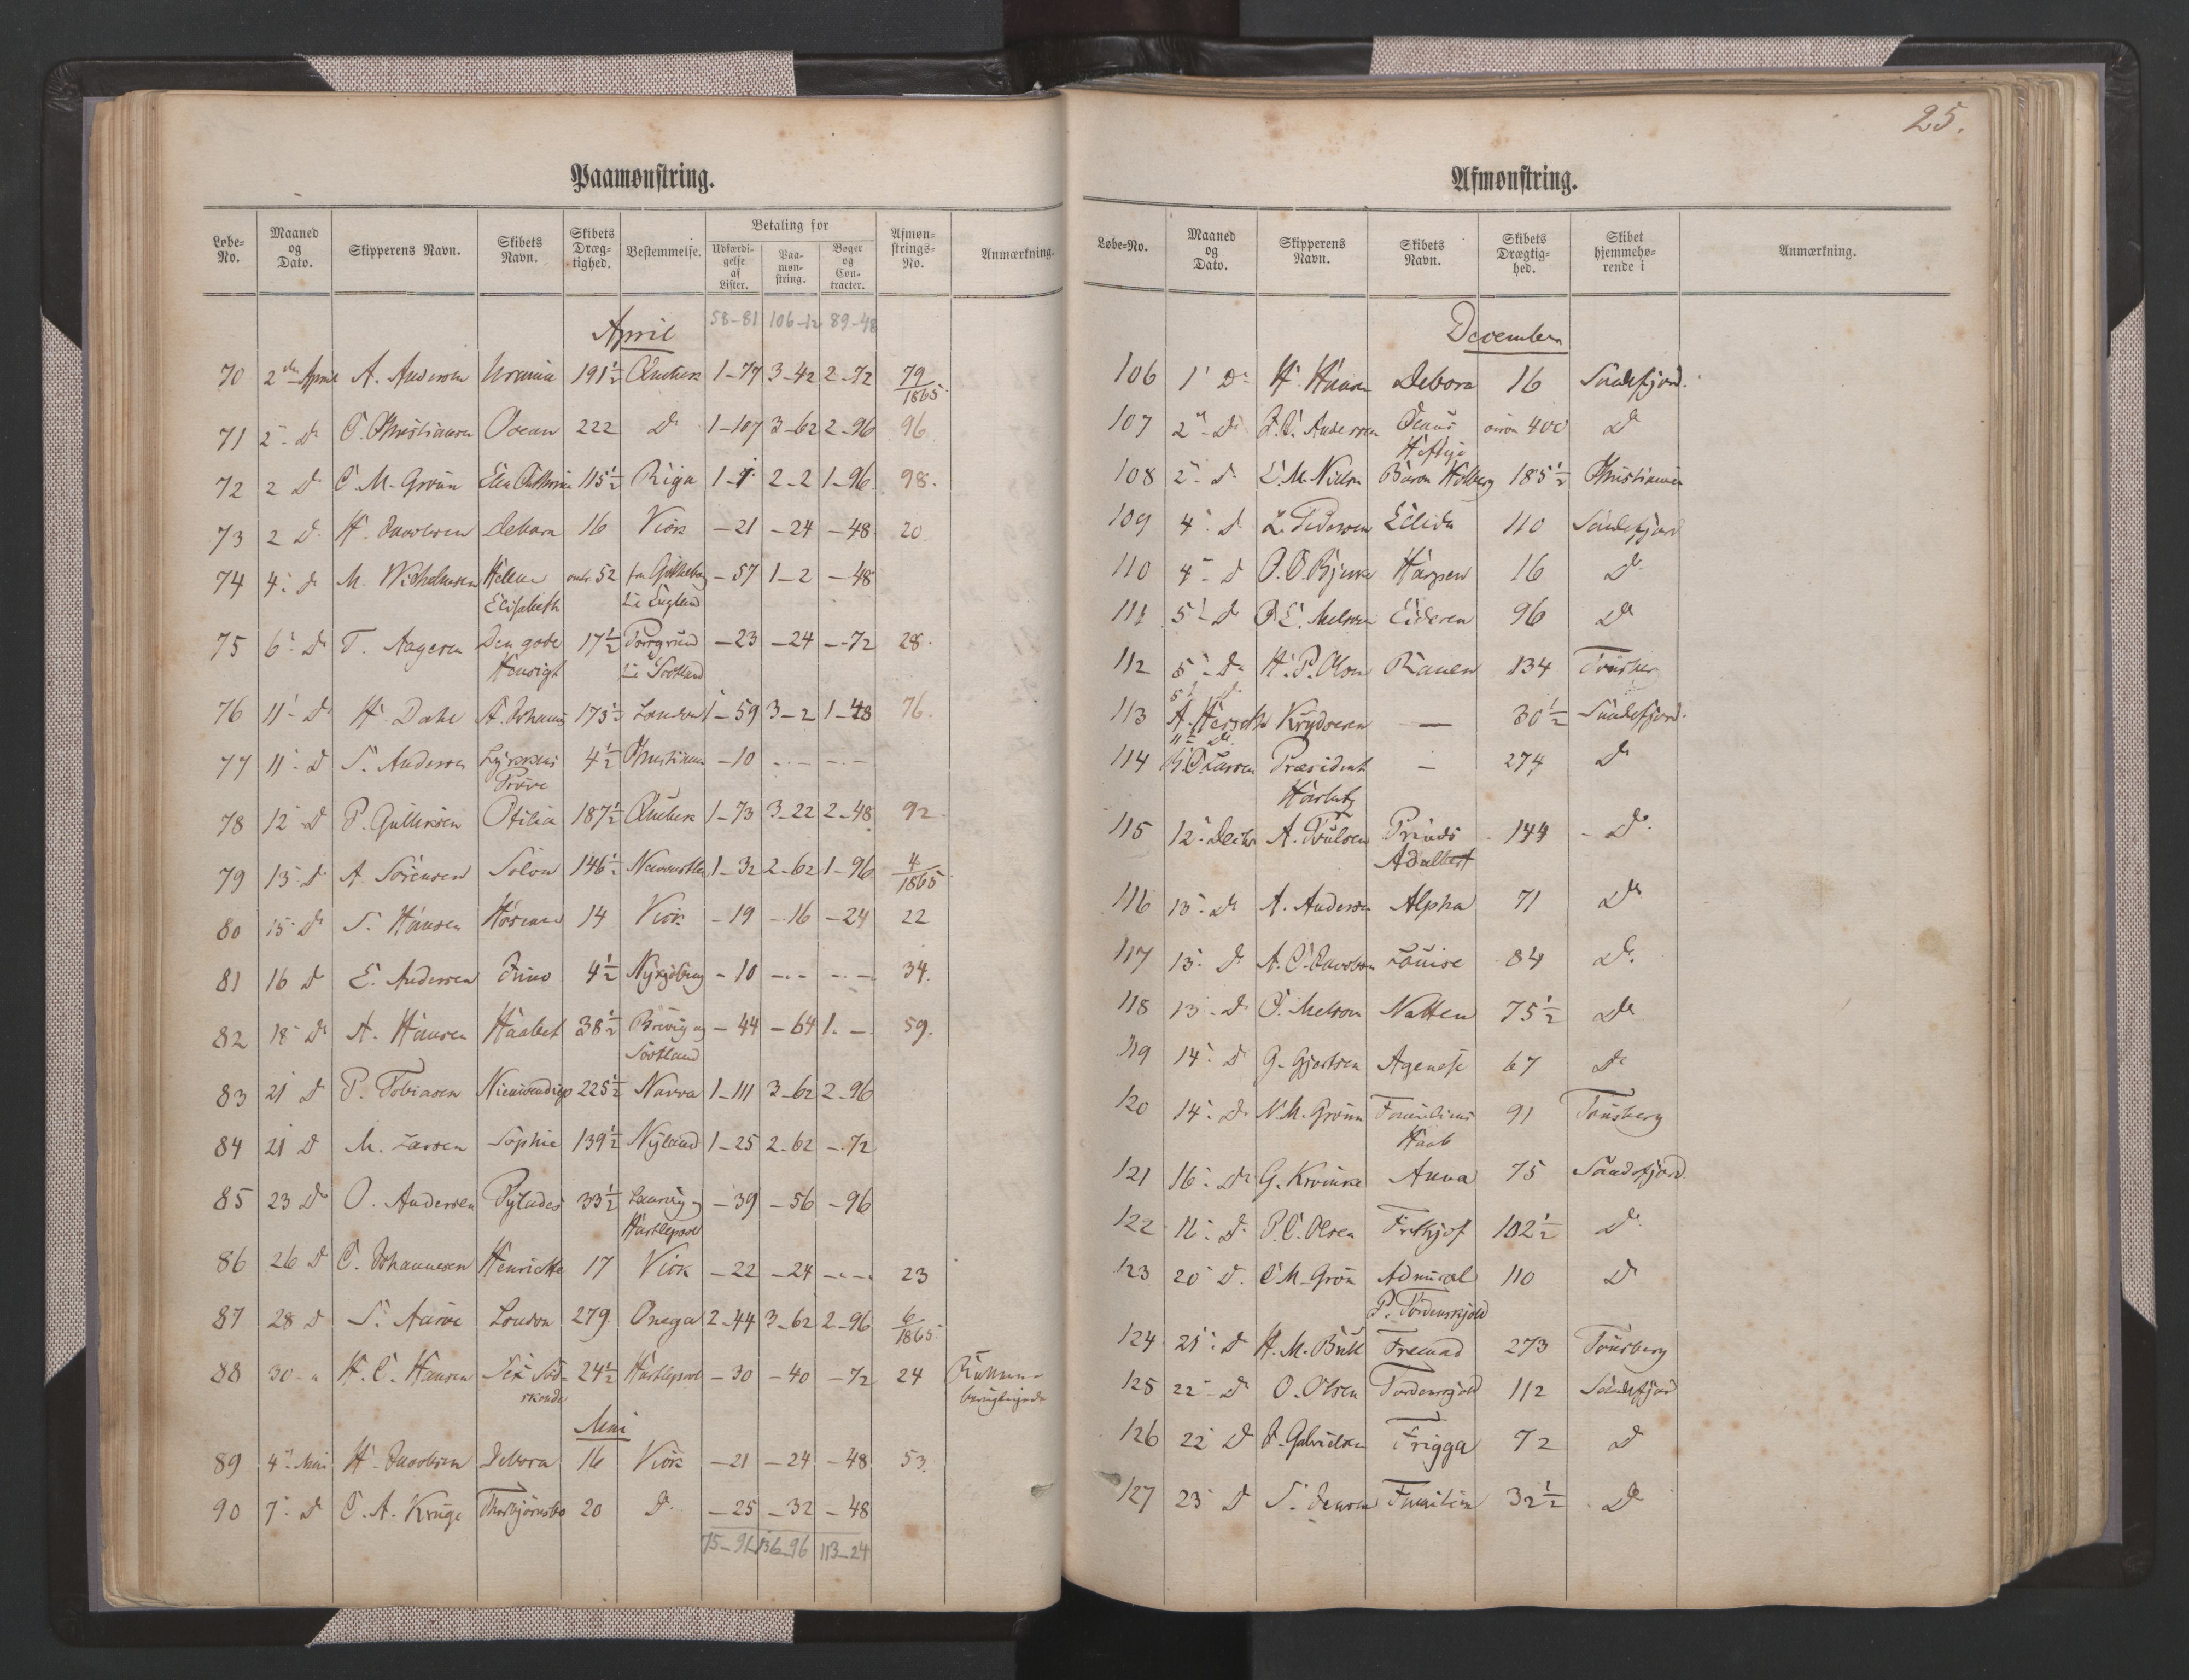 Paamonstring.
Løbe-No. Maaned og Dato. Skipperens Navn. Skibets Navn. Skibets Dræg-tighed. Bestemmelse. Betaling for Udfærdi-gelse af Lister. Paa-mon-string. Bøger og Con-tracter. Afmøn-strings-No. Anmærkning.
April 58-81 106-12 89-48
70 2den April A. Andersen Urania 191½ Quebek 1-77 3-42 2-72 79/1865.
71 2 - D C. Christiansen Ocean 222 D 1-107 3-62 2-96 96
72 2 D C. M. Grønn Elen Cathrine 115½ Riga 1-1 2-2 1-96 98.
73 2 D H. Jacobsen Debora 16 Viök -21 -24 -48 20.
74 4 - D M. Wilhelmsen Helene 52 fra Gøtheborg -57 1-2 -48
Elisabeth til England
75 6 - D T. Aagesen Den gode 17½ Porsgrund -23 -24 -72 28.
Hensigt til Scotland
76 11 - D H. Dahl St. Johannis 173½ London 1-59 3-2 1-48 76.
77 11 - D S. Andersen Lykkens 4½ Christiania -10 - - - -
Prøve
78 12 - D P. Gulliksen Otilia 187½ Quebek 1-73 3-22 2-48 92.
79 13 - D A. Sörensen Solon 146½ Newcastle 1-32 2-62 1-96 4/1865.
80 15 - D S. Hansen 14 Viök -19 -16 -24 22
81 16 D E. Andersen Juno 4½ Nykjöbing -10 - - - - 34.
82 18 - D A. Hansen Haabet 38½ Brevig og -44 -64 1. - 59.
Scotland
83 21 D P. Tobiasen Nieuwendiep 225½ Narva 1-111 3-62 2-96
84 21 D M. Larsen Sophie 139½ Nyland 1-25 2-62 -72
85 23 D O. Andersen Pylades 33½ Laurvig og -39 -56 -96
Hartlepool
86 26 D C. Johannesen Henriette 17 Viök -22 -24 - - 23
87 28 D S. Aarøe London 279 Onega 2-44 3-62 2-96 6/1865.
88 30 - " H. C. Hansen Sex Söd- 24½ Hartlepool -30 -40 -72 24
skende
Mai
89 4 - Mai H. Jacobsen Debora 16 Viök -21 -24 -48 53.
90 7 - D C. A. Kruge Thorbjørnsbo 20 D -25 -32 -48
75-91 136-96 113-24
25.
Afmonstring.
Løbe-No. Maaned og Dato. Skipperens Navn. Skibets Navn. Skibets Drægtig-hed. Skibet hjemmehø-rende i Anmærkning.
December
106 1 D H. Hansen Debora 16 Sandefjord.
107 2 - D J. C. Andersen Jeaus circa 400 D
Heftye
108 2 - D L. M. Nielsen Baron Holberg 185½ Christiania
109 4 - D L. Pedersen Ellida 110 Sandefjord
110 4 - D O. O. Bjerke Harpen 16 D
111 5 - D P. E. Melsom Eideren 96 D
112 5 - D H. P. Olsen Ranen 134 Tönsberg
113 5 - D A. Hersch Krydseren — 30½ Sandefjord.
114 11 - D Larsen Præsident — 274 D
Harbitz
115 12 - Decbr A. Poulsen Prinds 144 - D
Adalbert
116 13 - D A. Andersen Alpha 71 D
117 13 - D A. C. Jacobsen Louise 84 D.
118 13 - D C. Melsom Natten 75½ D
119 14 - D G. Gjertsen Agenese 67 D
120 14 - D N. M. Grønn Familiens 91 Tönsberg
Haab
121 16 - D G. Krømke Anna 75 Sandefjord
122 16 - D P. C. Olsen Frithjof 102½ D
123 20 D. C. M. Grön Admiral 110 D
P. Tordenskjold
124 21 - D H. M. Bull Fremad 273 Tönsberg
125 22 - D O. Olsen Tordenskjold 112 Sandefjord
126 22 D J. Gabrielsen Frigga 72 D
127 23 D S. Jensen Familien 32½ D